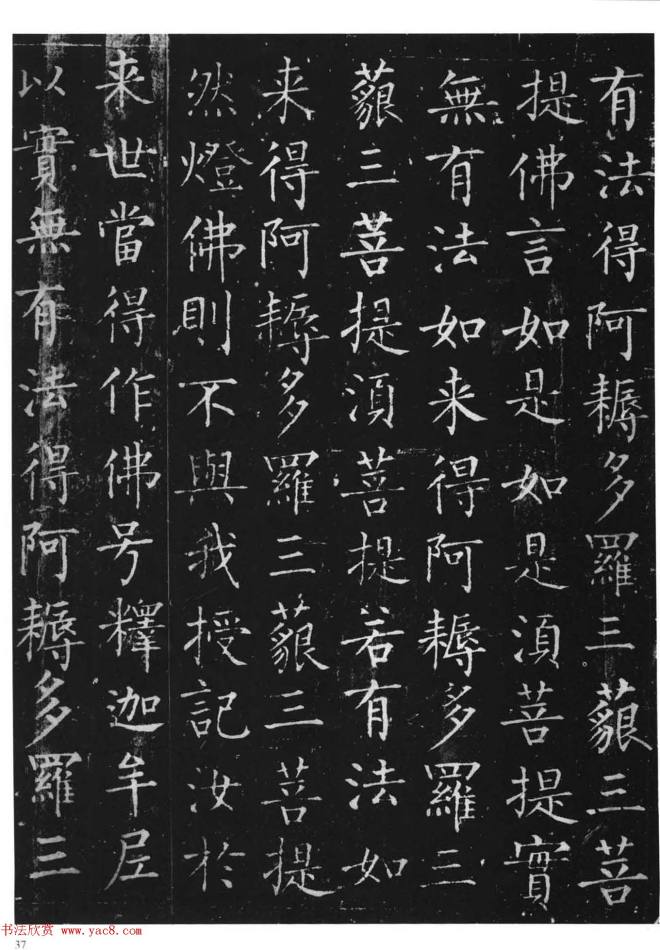 有法得阿耨多羅三藐三菩
提佛言如是如是湏菩提實
無有法如来得阿耨多羅三
藐三菩提湏菩提若有法如
来得阿耨多羅三藐三菩提
然燈佛則不與我授記汝於
来世當得作佛号釋迦牟尼
以實無有法得阿耨多羅三
书法欣赏 www.yac8.com
37